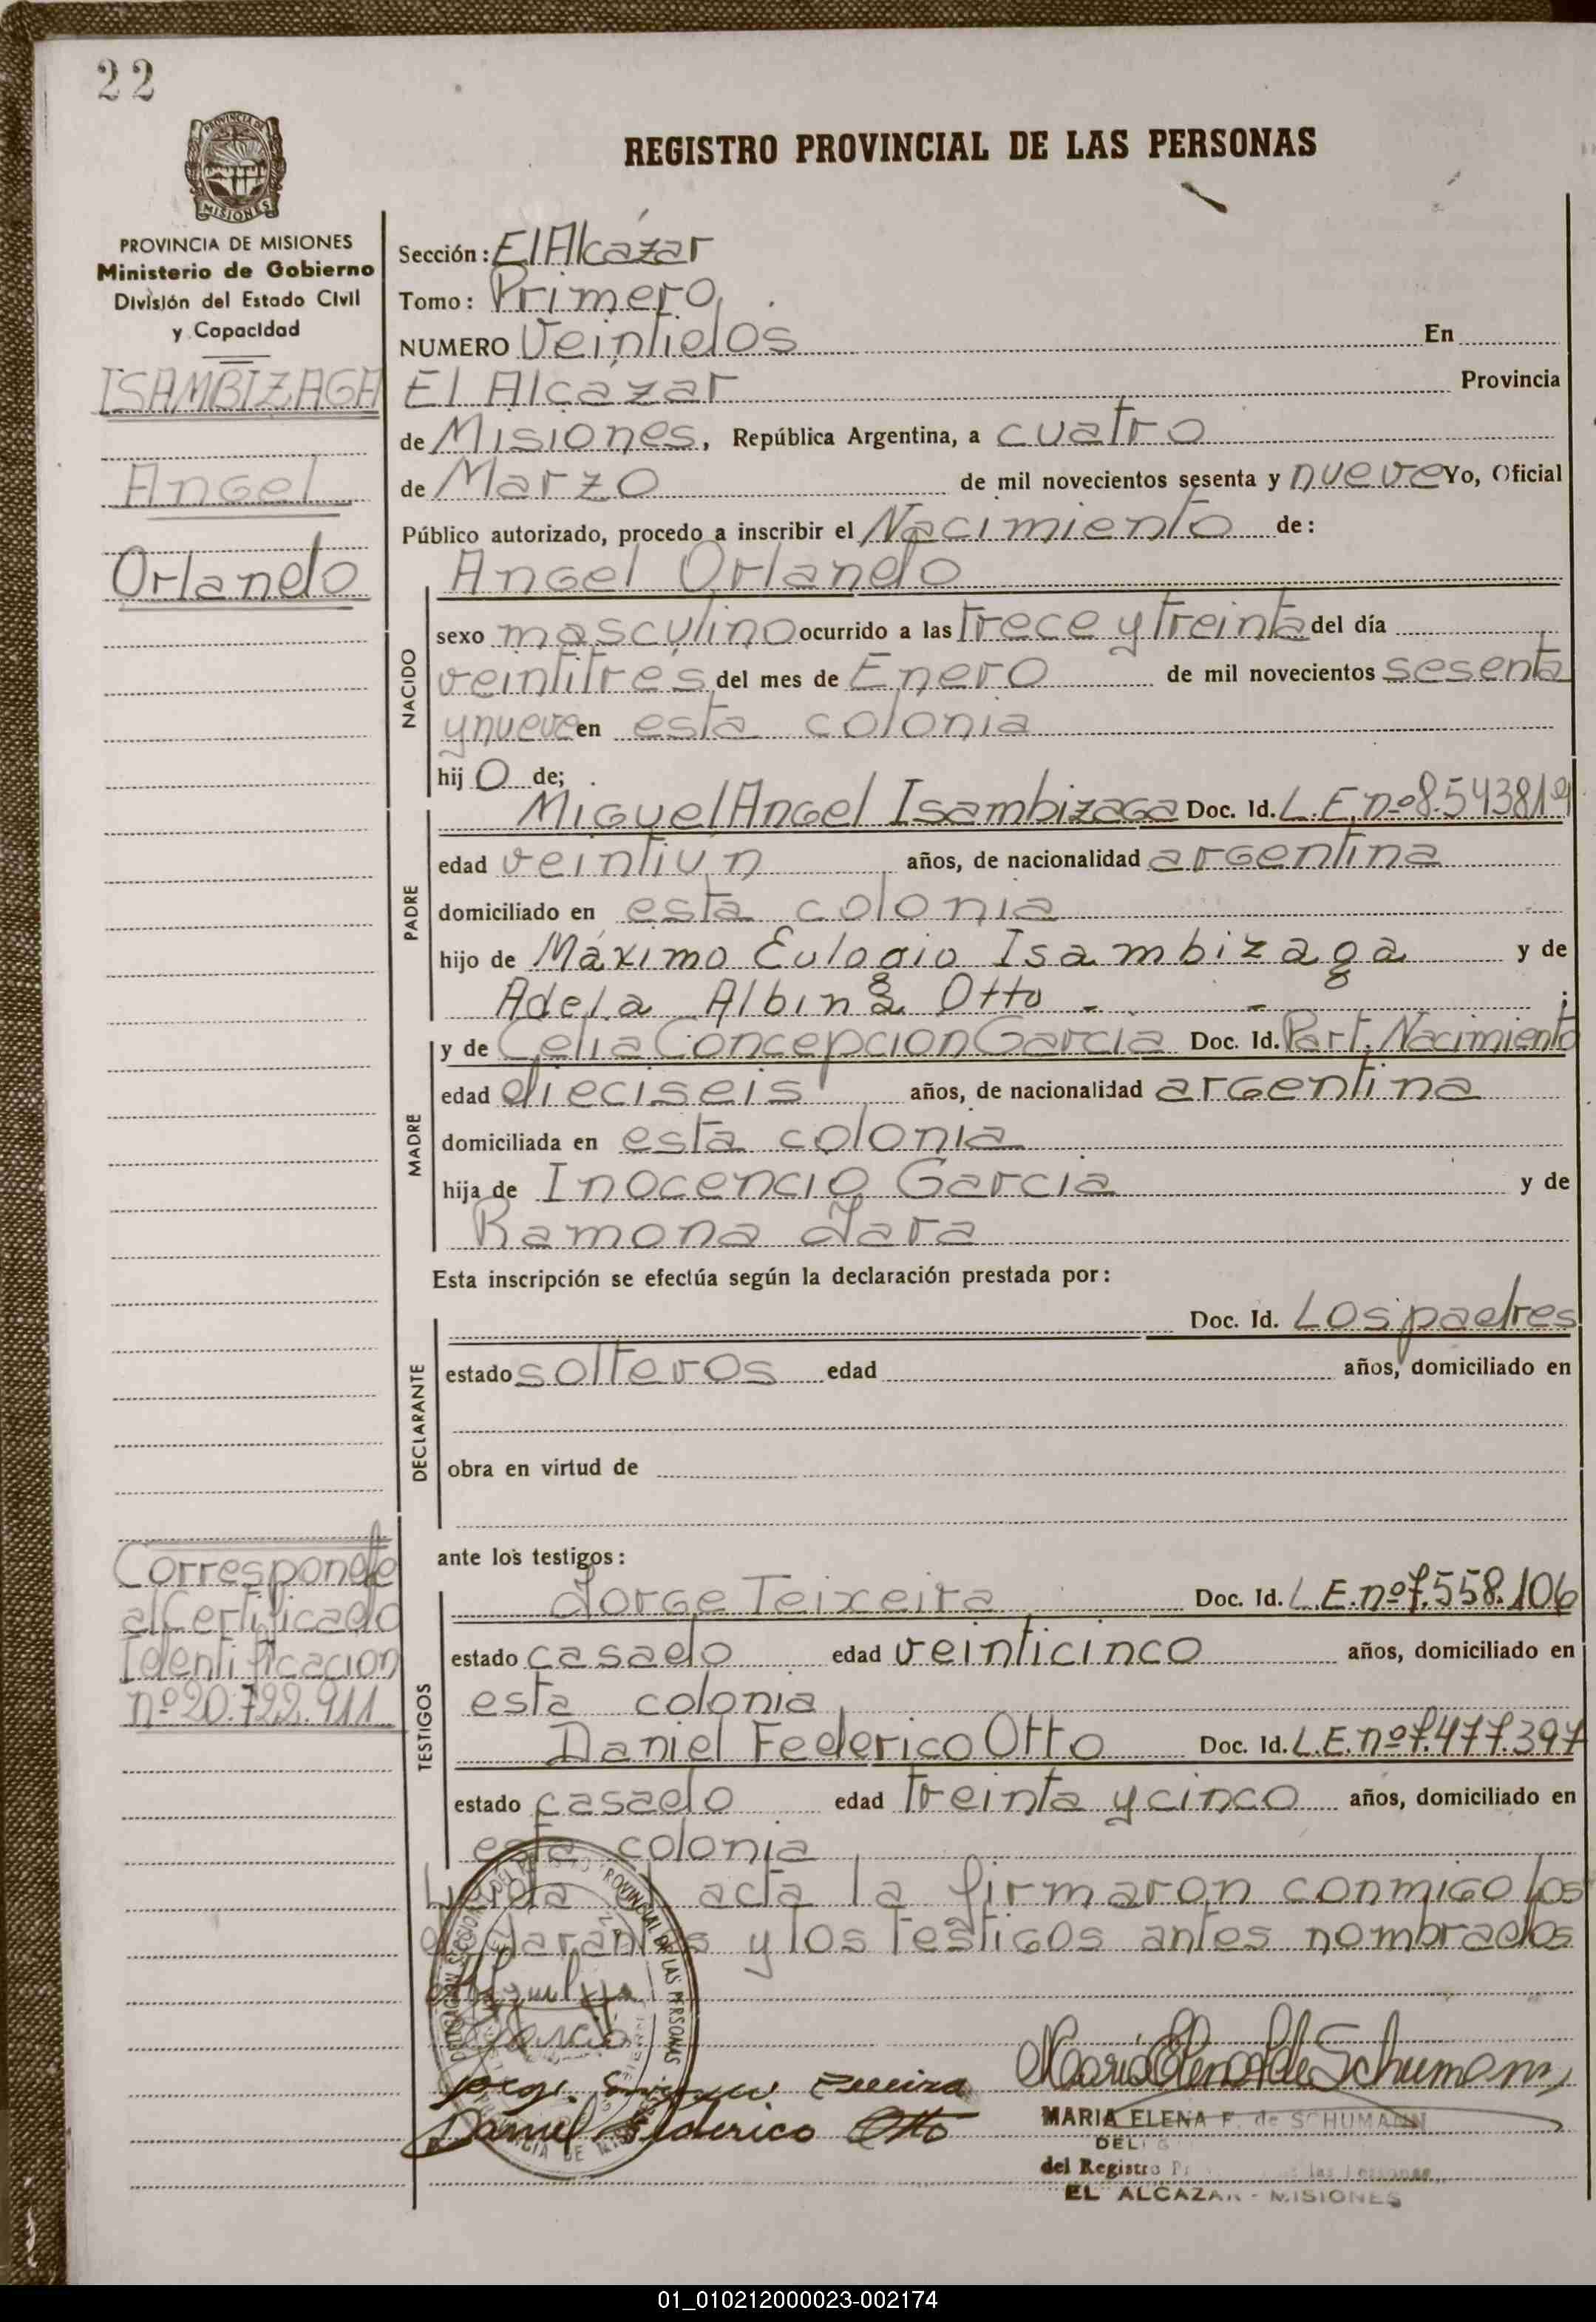 22
PROVINCIA DE
MISIONES
REGISTRO PROVINCIAL DE LAS PERSONAS
PROVINCIA DE MISIONES
Ministerio de Gobierno
División del Estado Civil
y Capacidad
ISAMBIZAGA
Angel
Orlando
Sección: El Alcázar
Tomo: Primero
NUMERO Veintidos En
El Alcázar Provincia
de Misiones, República Argentina, a cuatro
de Marzo de mil novecientos sesenta y nueve Yo, Oficial
Público autorizado, procedo a inscribir el Nacimiento de:
NACIDO
Angel Orlando
sexo masculino ocurrido a las trece y treinta del día
veintitrés del mes de Enero de mil novecientos sesenta
y nueve en esta colonia
hij o de;
PADRE
Miguel Angel Isambizaga Doc. Id. L.E. nº 8.543819
edad veintiun años, de nacionalidad argentina
domiciliado en esta colonia
hijo de Máximo Eulogio Isambizaga y de
Adela Albina Otto - - ;
MADRE
y de Celia Concepcion Garcia Doc. Id. Part. Nacimiento
edad dieciseis años, de nacionalidad argentina
domiciliada en esta colonia
hija de Inocencio Garcia y de
Ramona Jara
Esta inscripción se efectúa según la declaración prestada por:
DECLARANTE
Doc. Id. Los padres
estado solteros edad años, domiciliado en
obra en virtud de
Corresponde
al Certificado
Identificacion
nº 20.722.911
ante los testigos:
TESTIGOS
Jorge Teixeira Doc. Id. L.E. nº 7.558.106
estado casado edad veinticinco años, domiciliado en
esta colonia
Daniel Federico Otto Doc. Id. L.E. nº 7.477.397
estado casado edad treinta y cinco años, domiciliado en
esta colonia
Leida el acta la firmaron conmigo los
declarantes y los testigos antes nombrados
PROVINCIAL DE LAS PERSONAS
Daniel Federico Otto
Maria Elena F de Schumann
MARIA ELENA F. de SCHUMANN
del Registro
EL ALCAZAR - MISIONES
01_010212000023-002174